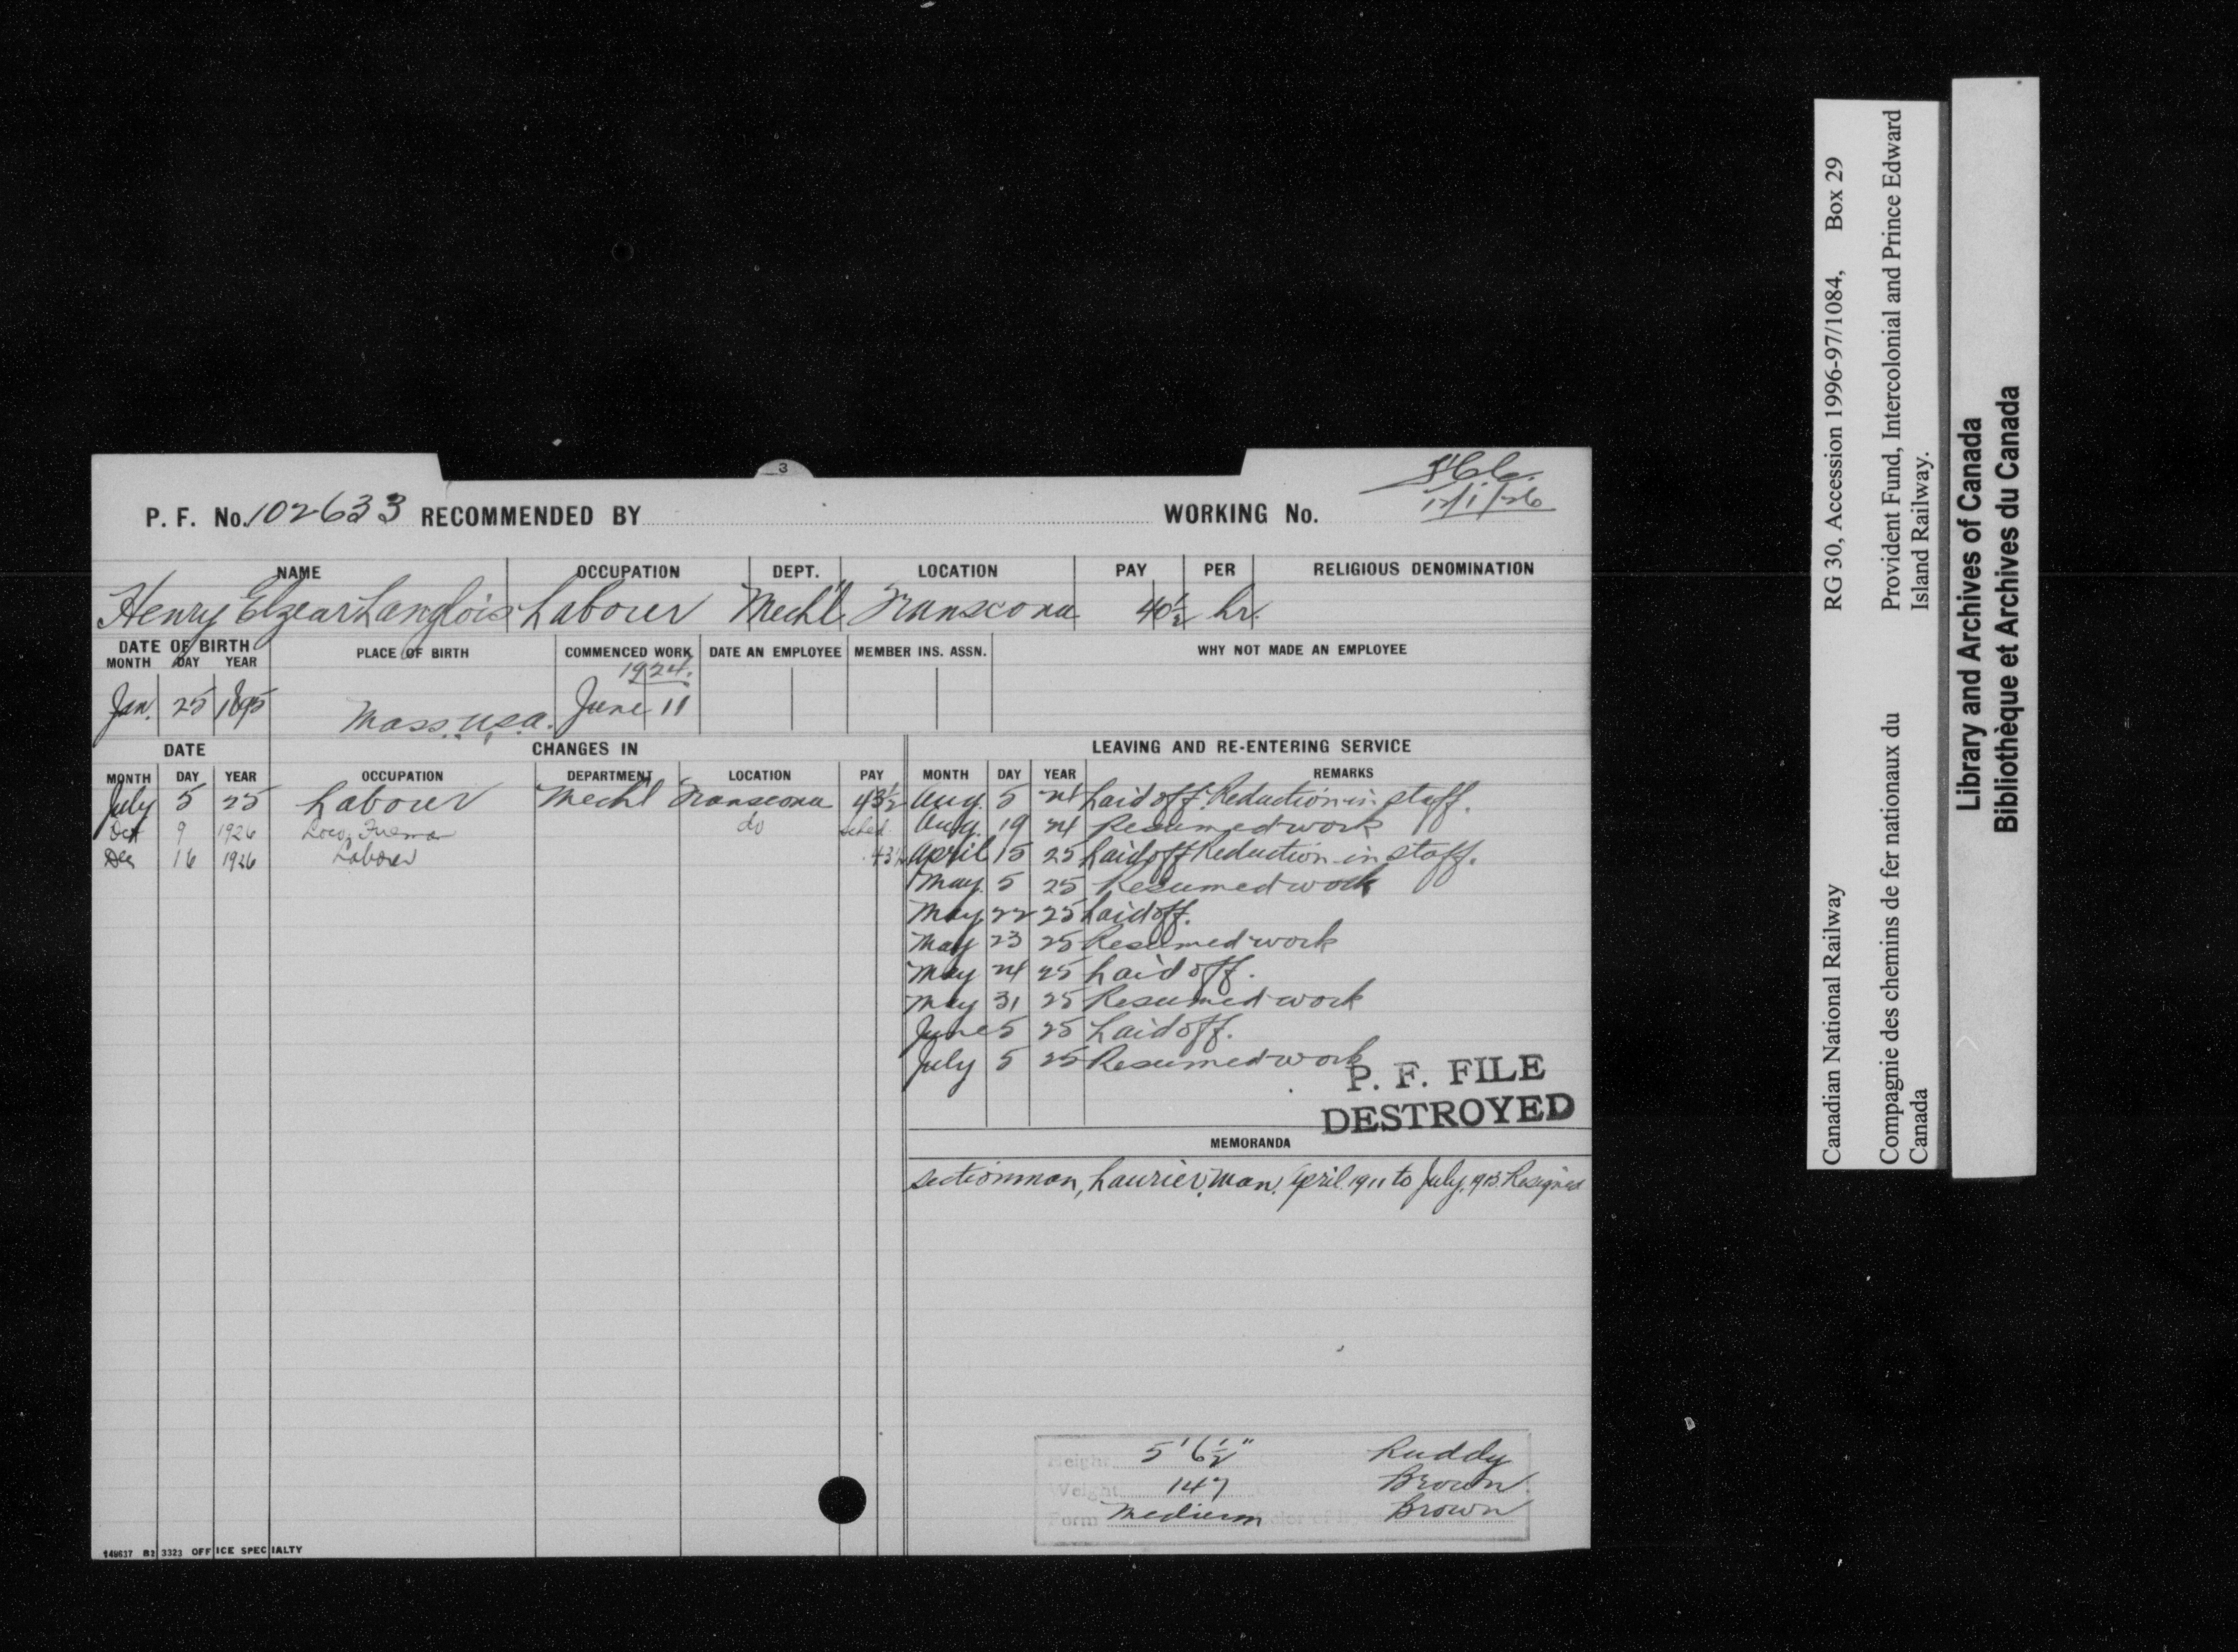 3
12/1/26
P. F. No. 102633 RECOMMENDED BY WORKING No.
NAME OCCUPATION DEPT. LOCATION PAY PER RELIGIOUS DENOMINATION
Henry Elzear Langlois Labourer Mech'l Transcona 40½ hr.
DATE OF BIRTH PLACE OF BIRTH COMMENCED WORK DATE AN EMPLOYEE MEMBER INS. ASSN. WHY NOT MADE AN EMPLOYEE
MONTH DAY YEAR
1924.
Jan. 25 1895 Mass. U.S.A. June 11
DATE CHANGES IN LEAVING AND RE-ENTERING SERVICE
MONTH DAY YEAR OCCUPATION DEPARTMENT LOCATION PAY MONTH DAY YEAR REMARKS
July 5 25 Labourer Mech'l Transcona 43½ Aug. 5 24 Laid off. Reduction in staff.
Oct 9 1926 Loco. Fireman do sched Aug. 19 24 Resumed work
Dec 16 1926 Laborer 43½ April 15 25 Laid off Reduction in staff.
May 5 25 Resumed work
May 22 25 Laid off.
May 23 25 Resumed work
May 24 25 Laid off.
May 31 25 Resumed work
June 5 25 Laid off.
July 5 25 Resumed work
P. F. FILE
DESTROYED
MEMORANDA
Sectionman, Laurier, Man. April 1911 to July, 1913. Resigned
Height 5' 6½" Ruddy
Weight 147 Brown
Form Medium Brown
149637 B2 3323 OFFICE SPECIALTY
Canadian National Railway RG 30, Accession 1996-97/1084, Box 29
Compagnie des chemins de fer nationaux du Provident Fund, Intercolonial and Prince Edward
Canada Island Railway.
Library and Archives of Canada
Bibliothèque et Archives du Canada